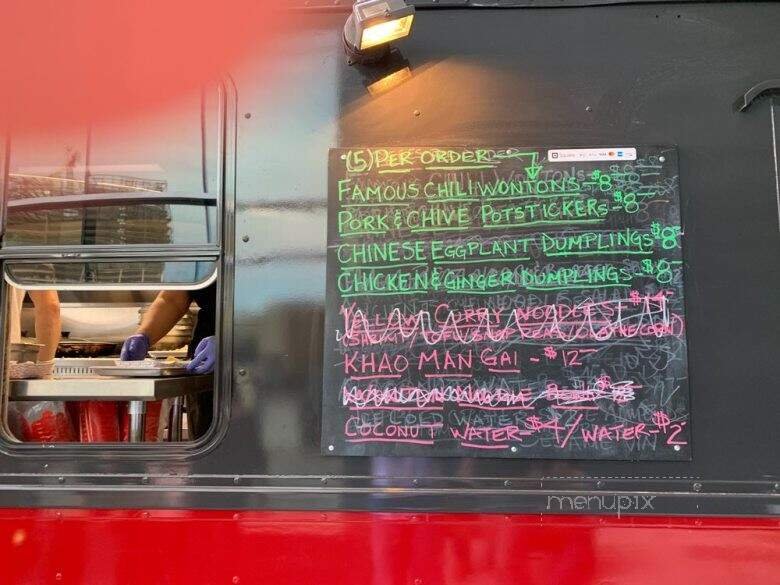 (5) PER ORDER
FAMOUS CHILI WONTONS - $8
PORK & CHIVE POTSTICKERS - $8
CHINESE EGGPLANT DUMPLINGS $8
CHICKEN & GINGER DUMPLINGS - $8
YELLOW CURRY NOODLES
KHAO MAN GAI - $12
COCONUT WATER - $4 / WATER - $2
menupix